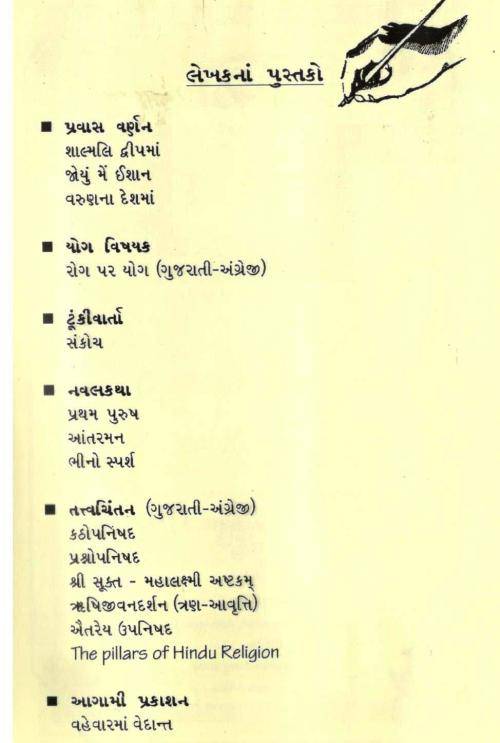 લેખકનાં પુસ્તકો
■ પ્રવાસ વર્ણન
શાલ્મલિ દ્વીપમાં
જોયું મેં ઈશાન
વરુણના દેશમાં
■ યોગ વિષયક
રોગ પર યોગ (ગુજરાતી-અંગ્રેજી)
■ ટૂંકીવાર્તા
સંકોચ
■ નવલકથા
પ્રથમ પુરુષ
આંતરમન
ભીનો સ્પર્શ
■ તત્ત્વચિંતન (ગુજરાતી-અંગ્રેજી)
કઠોપનિષદ
પ્રશ્નોપનિષદ
શ્રી સૂક્ત - મહાલક્ષ્મી અષ્ટકમ્
ઋષિજીવનદર્શન (ત્રણ-આવૃત્તિ)
ઐતરેય ઉપનિષદ
The pillars of Hindu Religion
■ આગામી પ્રકાશન
વહેવારમાં વેદાન્ત